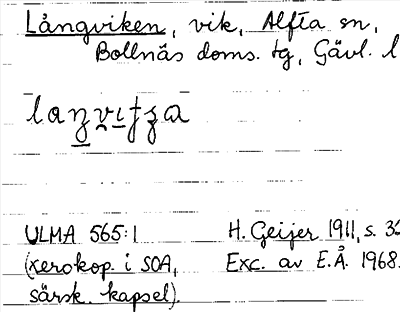 Långviken, vik, Alfta sn,
Bollnäs doms. tg, Gävl. l
ULMA 565:1 H. Geijer 1911, s. 3
(xerokop. i SOA, Exc. av E.Å. 1968.
särsk. kapsel).